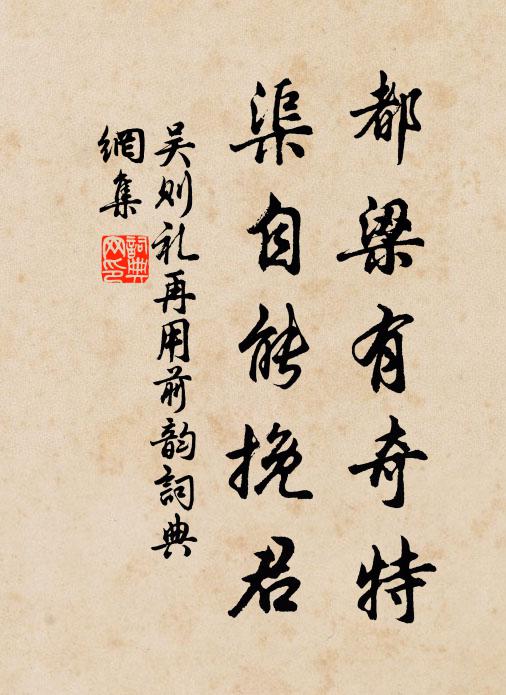 都梁有奇特
渠自能挽君
吴则礼再用前韵詞典
網集
詞典
网印